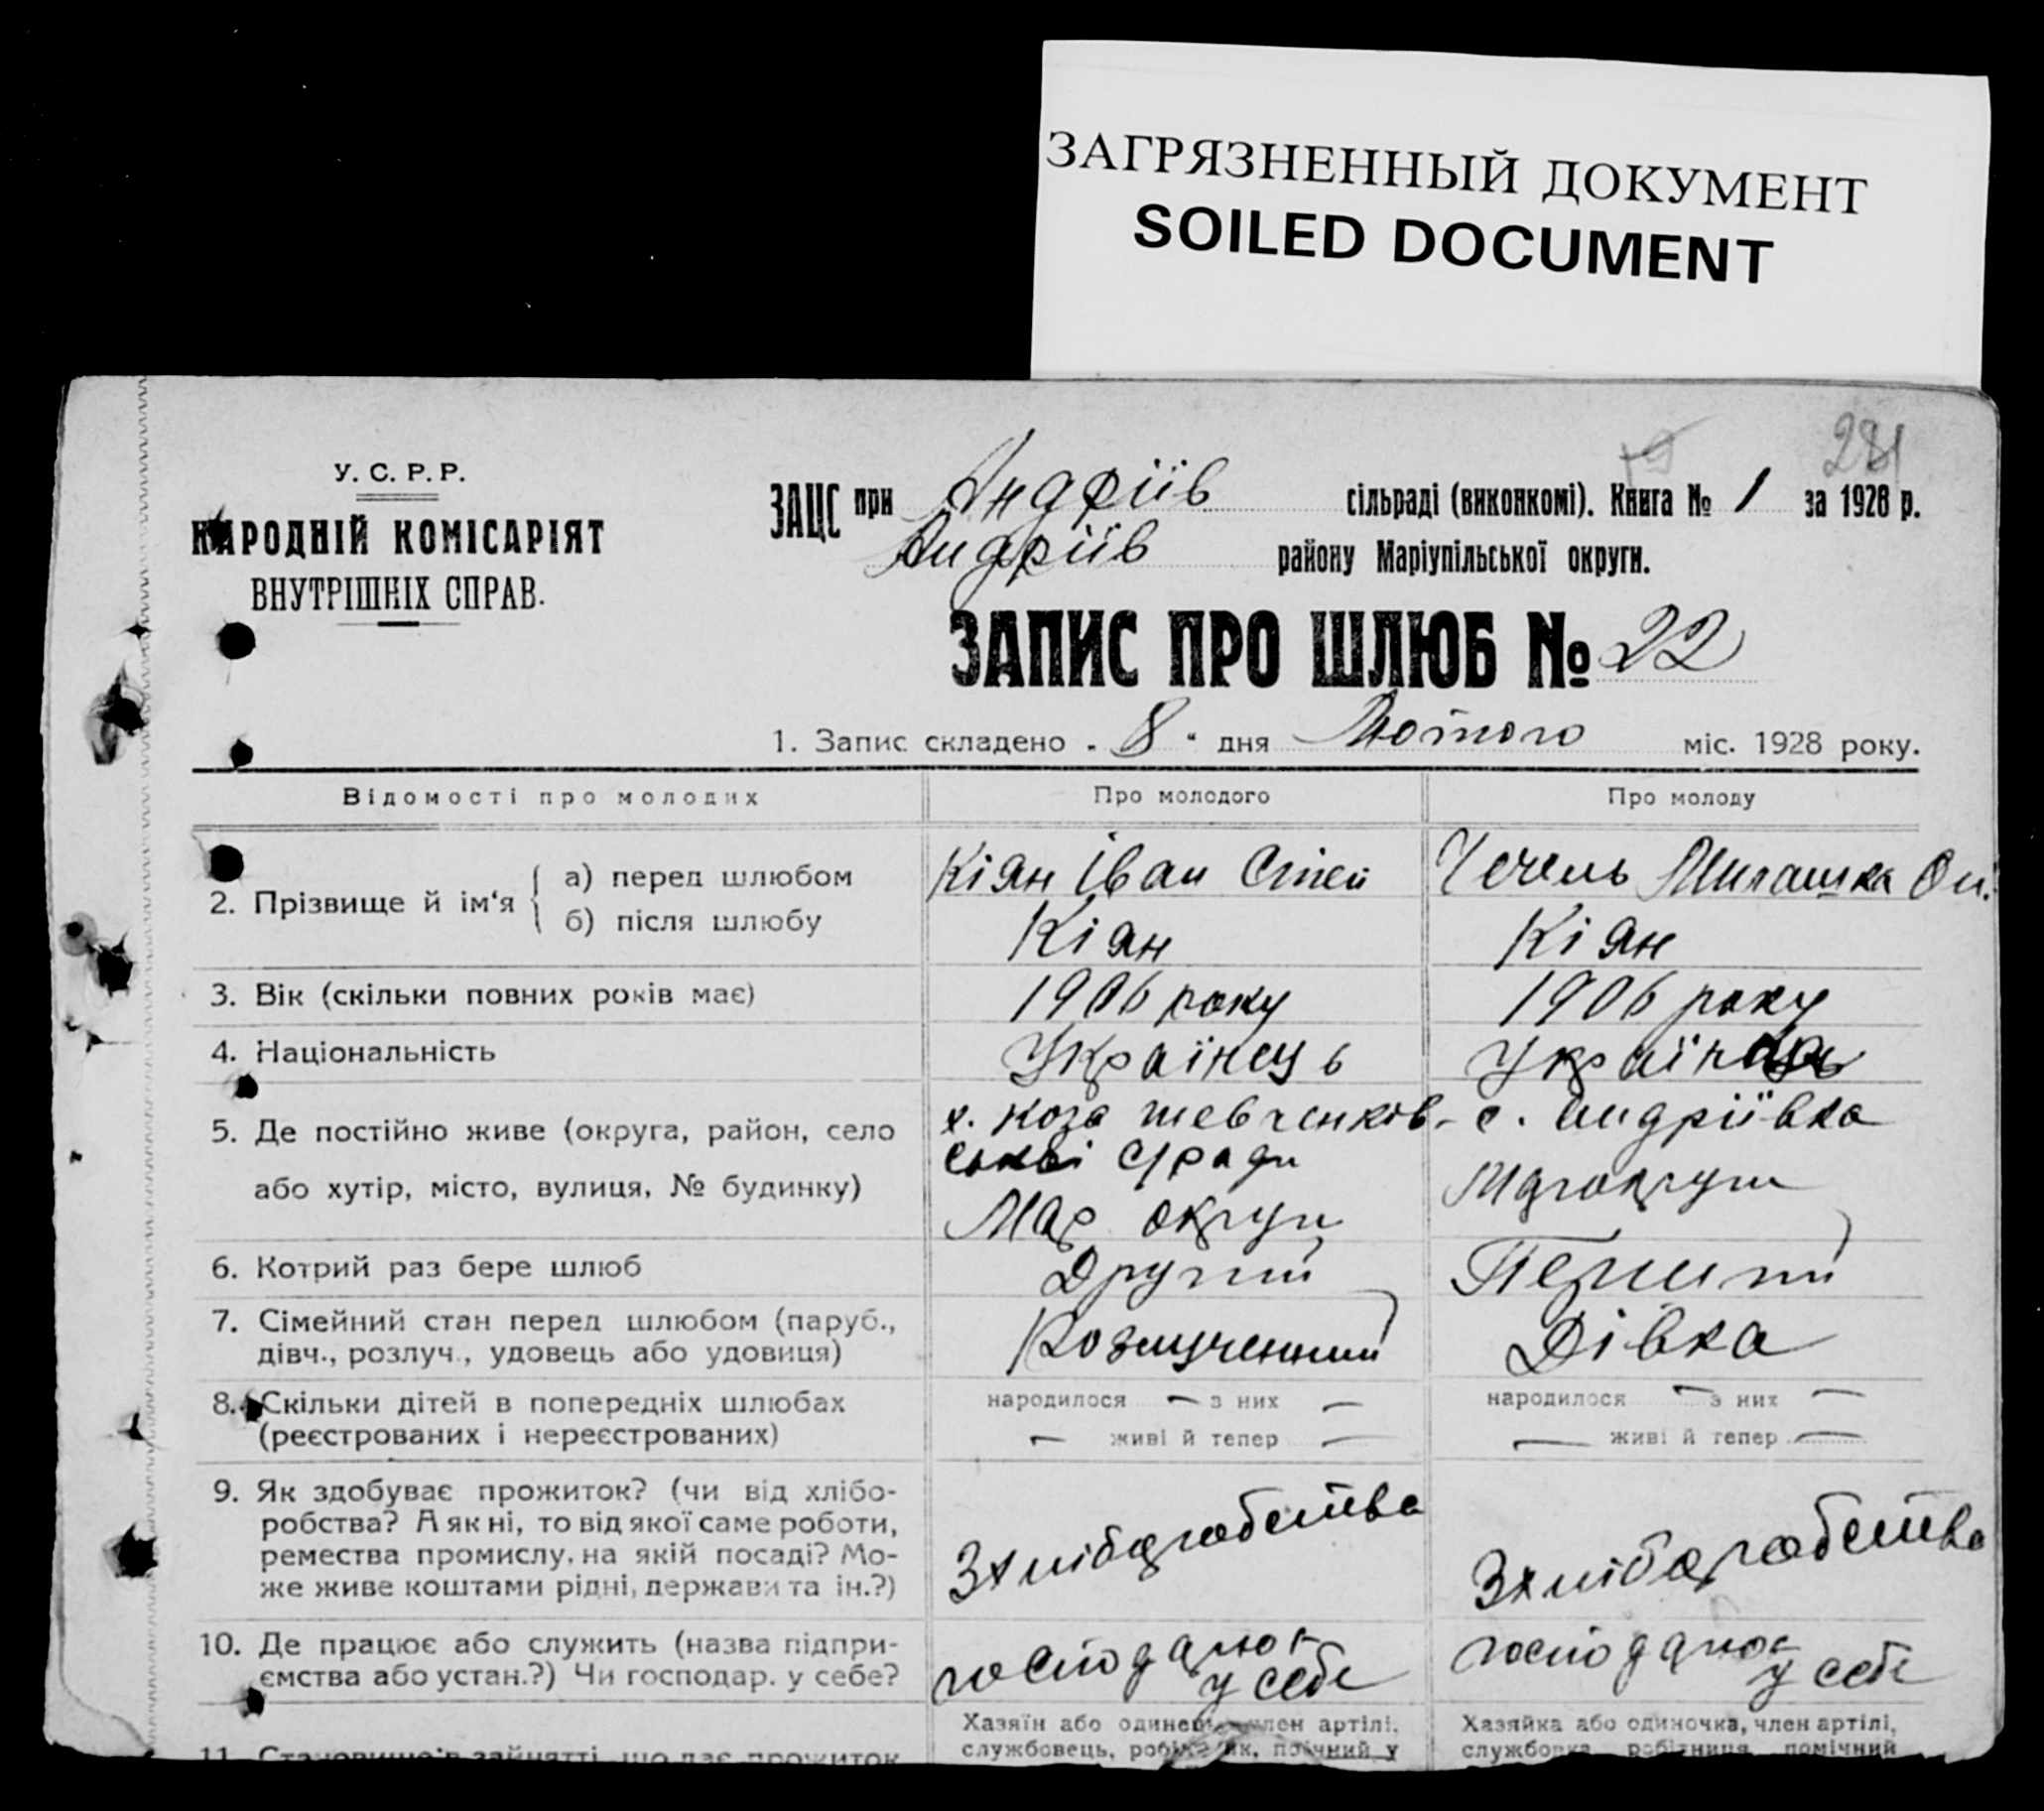 ЗАГРЯЗНЕННЫЙ ДОКУМЕНТ
SOILED DOCUMENT
281
У. С. Р. Р.
НАРОДНІЙ КОМІСАРІЯТ
ВНУТРІШНІХ СПРАВ.
ЗАЦС при Андріїв сільраді (виконкомі). Книга № 1 за 1928 р.
Андріїв району Маріупільської округи.
ЗАПИС ПРО ШЛЮБ № 22
1. Запис складено „8“ дня Лютого міс. 1928 року.
Відомості про молодих Про молодого Про молоду
2. Прізвище й ім'я { а) перед шлюбом Кіян Іван Степ Чечель Милашка
б) після шлюбу Кіян Кіян
3. Вік (скільки повних років має) 1906 року 1906 року
4. Національність Українець Українець
5. Де постійно живе (округа, район, село х. Коза шевченків- с. Андріївка
або хутір, місто, вулиця, № будинку) ської с/ради
Мар округи
6. Котрий раз бере шлюб Другий Перший
7. Сімейний стан перед шлюбом (паруб., дівч., розлуч., удовець або удовиця) Розлученний Дівка
8. Скільки дітей в попередніх шлюбах народилося — з них — народилося — з них —
(реєстрованих і нереєстрованих) — живі й тепер — — живі й тепер —
9. Як здобуває прожиток? (чи від хлібо-
робства? А як ні, то від якої саме роботи,
ремества промислу, на якій посаді? Мо-
же живе коштами рідні, держави та ін.?) З хліборобства З хліборобства
10. Де працює або служить (назва підпри-
ємства або устан.?) Чи господар. у себе? господарює у себе господарює у себе
Хазяїн або одинець, член артілі, Хазяйка або одиночка, член артілі,
11. Становище в зайнятті, що дає прожиток службовець, робітник, помічний у службовка робітниця помічний